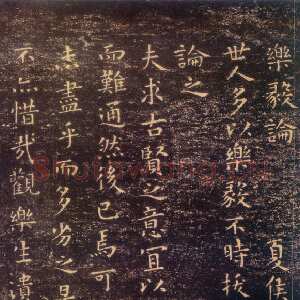 樂毅論 夏侯
世人多以樂毅不時拔
論之
夫求古賢之意宜以
而難通然後已焉可
志盡乎而多劣之是
不亦惜哉觀樂生遺